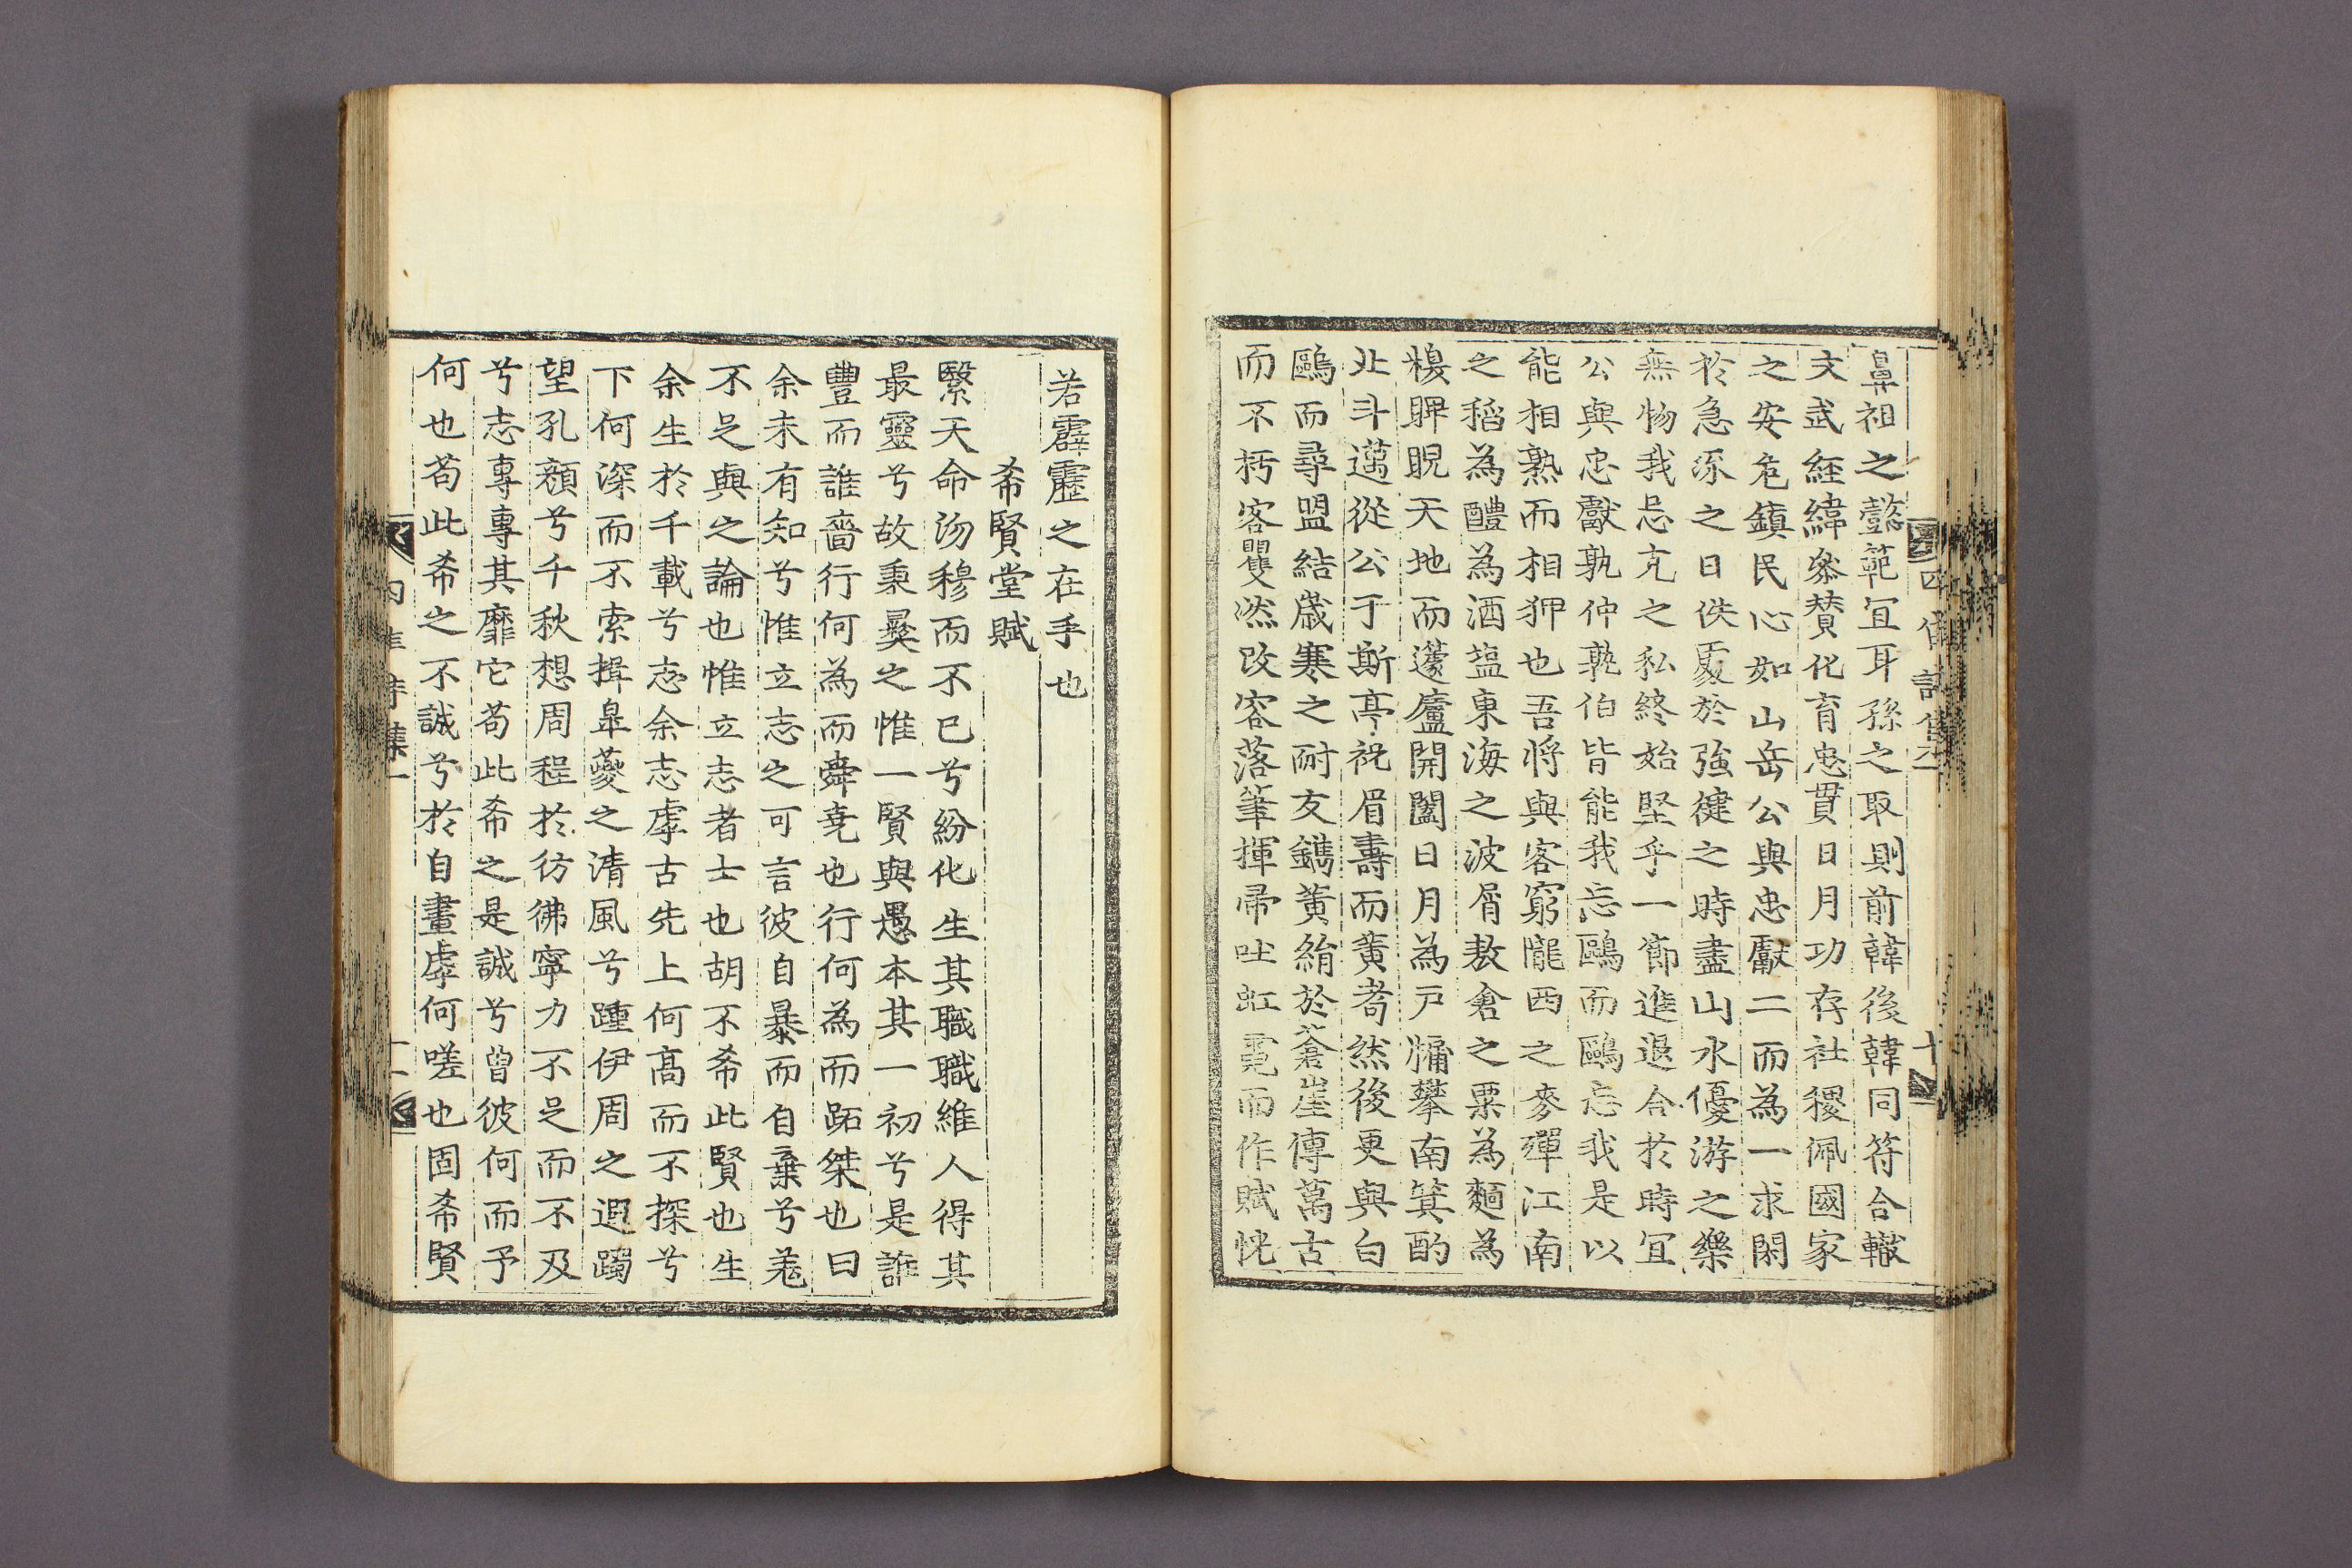 鼻祖之懿範宜耳孫之取則前韓後韓同符合轍
文武經緯叅賛化育忠貫日月功存社稷佩國家
之安危鎮民心如山岳公與忠獻二而為一求閑
於急流之日佚處於強健之時盡山水優游之樂
無物我忌克之私終始堅乎一節進退合於時宜
公與忠獻孰仲孰伯皆能我忘鷗而鷗忘我是以
能相熟而相狎也吾將與客窮隴西之麥殫江南
之稻為醴為酒塩東海之波屑敖倉之粟為麵為
糗睥睨天地而蘧廬開闔日月為戸牖攀南箕酌
北斗邁從公于斯亭祝眉壽而黃耇然後更與白
鷗而尋盟結歳寒之耐友鐫黃絹於蒼崖傳萬古
而不朽客矍然改容落筆揮帚吐虹霓而作賦恍
若霹靂之在手也
希賢堂賦
緊天命沕穆而不已兮紛化生其職職維人得其
最靈兮故秉彛之惟一賢與愚本其一初兮是誰
豐而誰嗇行何為而舜堯也行何為而跖桀也曰
余未有知兮惟立志之可言彼自暴而自棄兮羗
不足與之論也惟立志者士也胡不希此賢也生
余生於千載兮志余志虖古先上何髙而不探兮
下何深而不索揖皐夔之清風兮踵伊周之遐躅
望孔顔兮千秋想周程於彷彿寧力不足而不及
兮志專專其靡它苟此希之是誠兮曾彼何而予
何也苟此希之不誠兮於自畫虖何嗟也固希賢